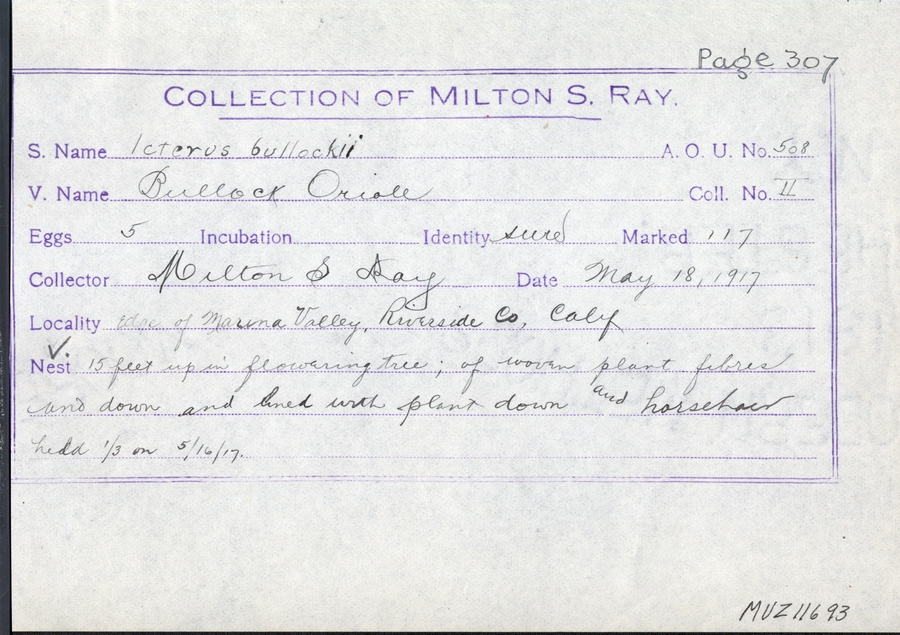 Page 307
COLLECTION OF MILTON S. RAY.
S. Name Icterus bullockii A. O. U. No. 508
V. Name Bullock Oriole Coll. No. II
Eggs 5 Incubation Identity sure Marked 117
Collector Milton S Ray Date May 18, 1917
Locality Edge of Valley, Riverside Co, Calif
Nest 15 feet up in flowering tree; of woven plant fibres
and down and lined with plant down and horsehair
held 1/3 on 5/16/17.
MVZ 11693